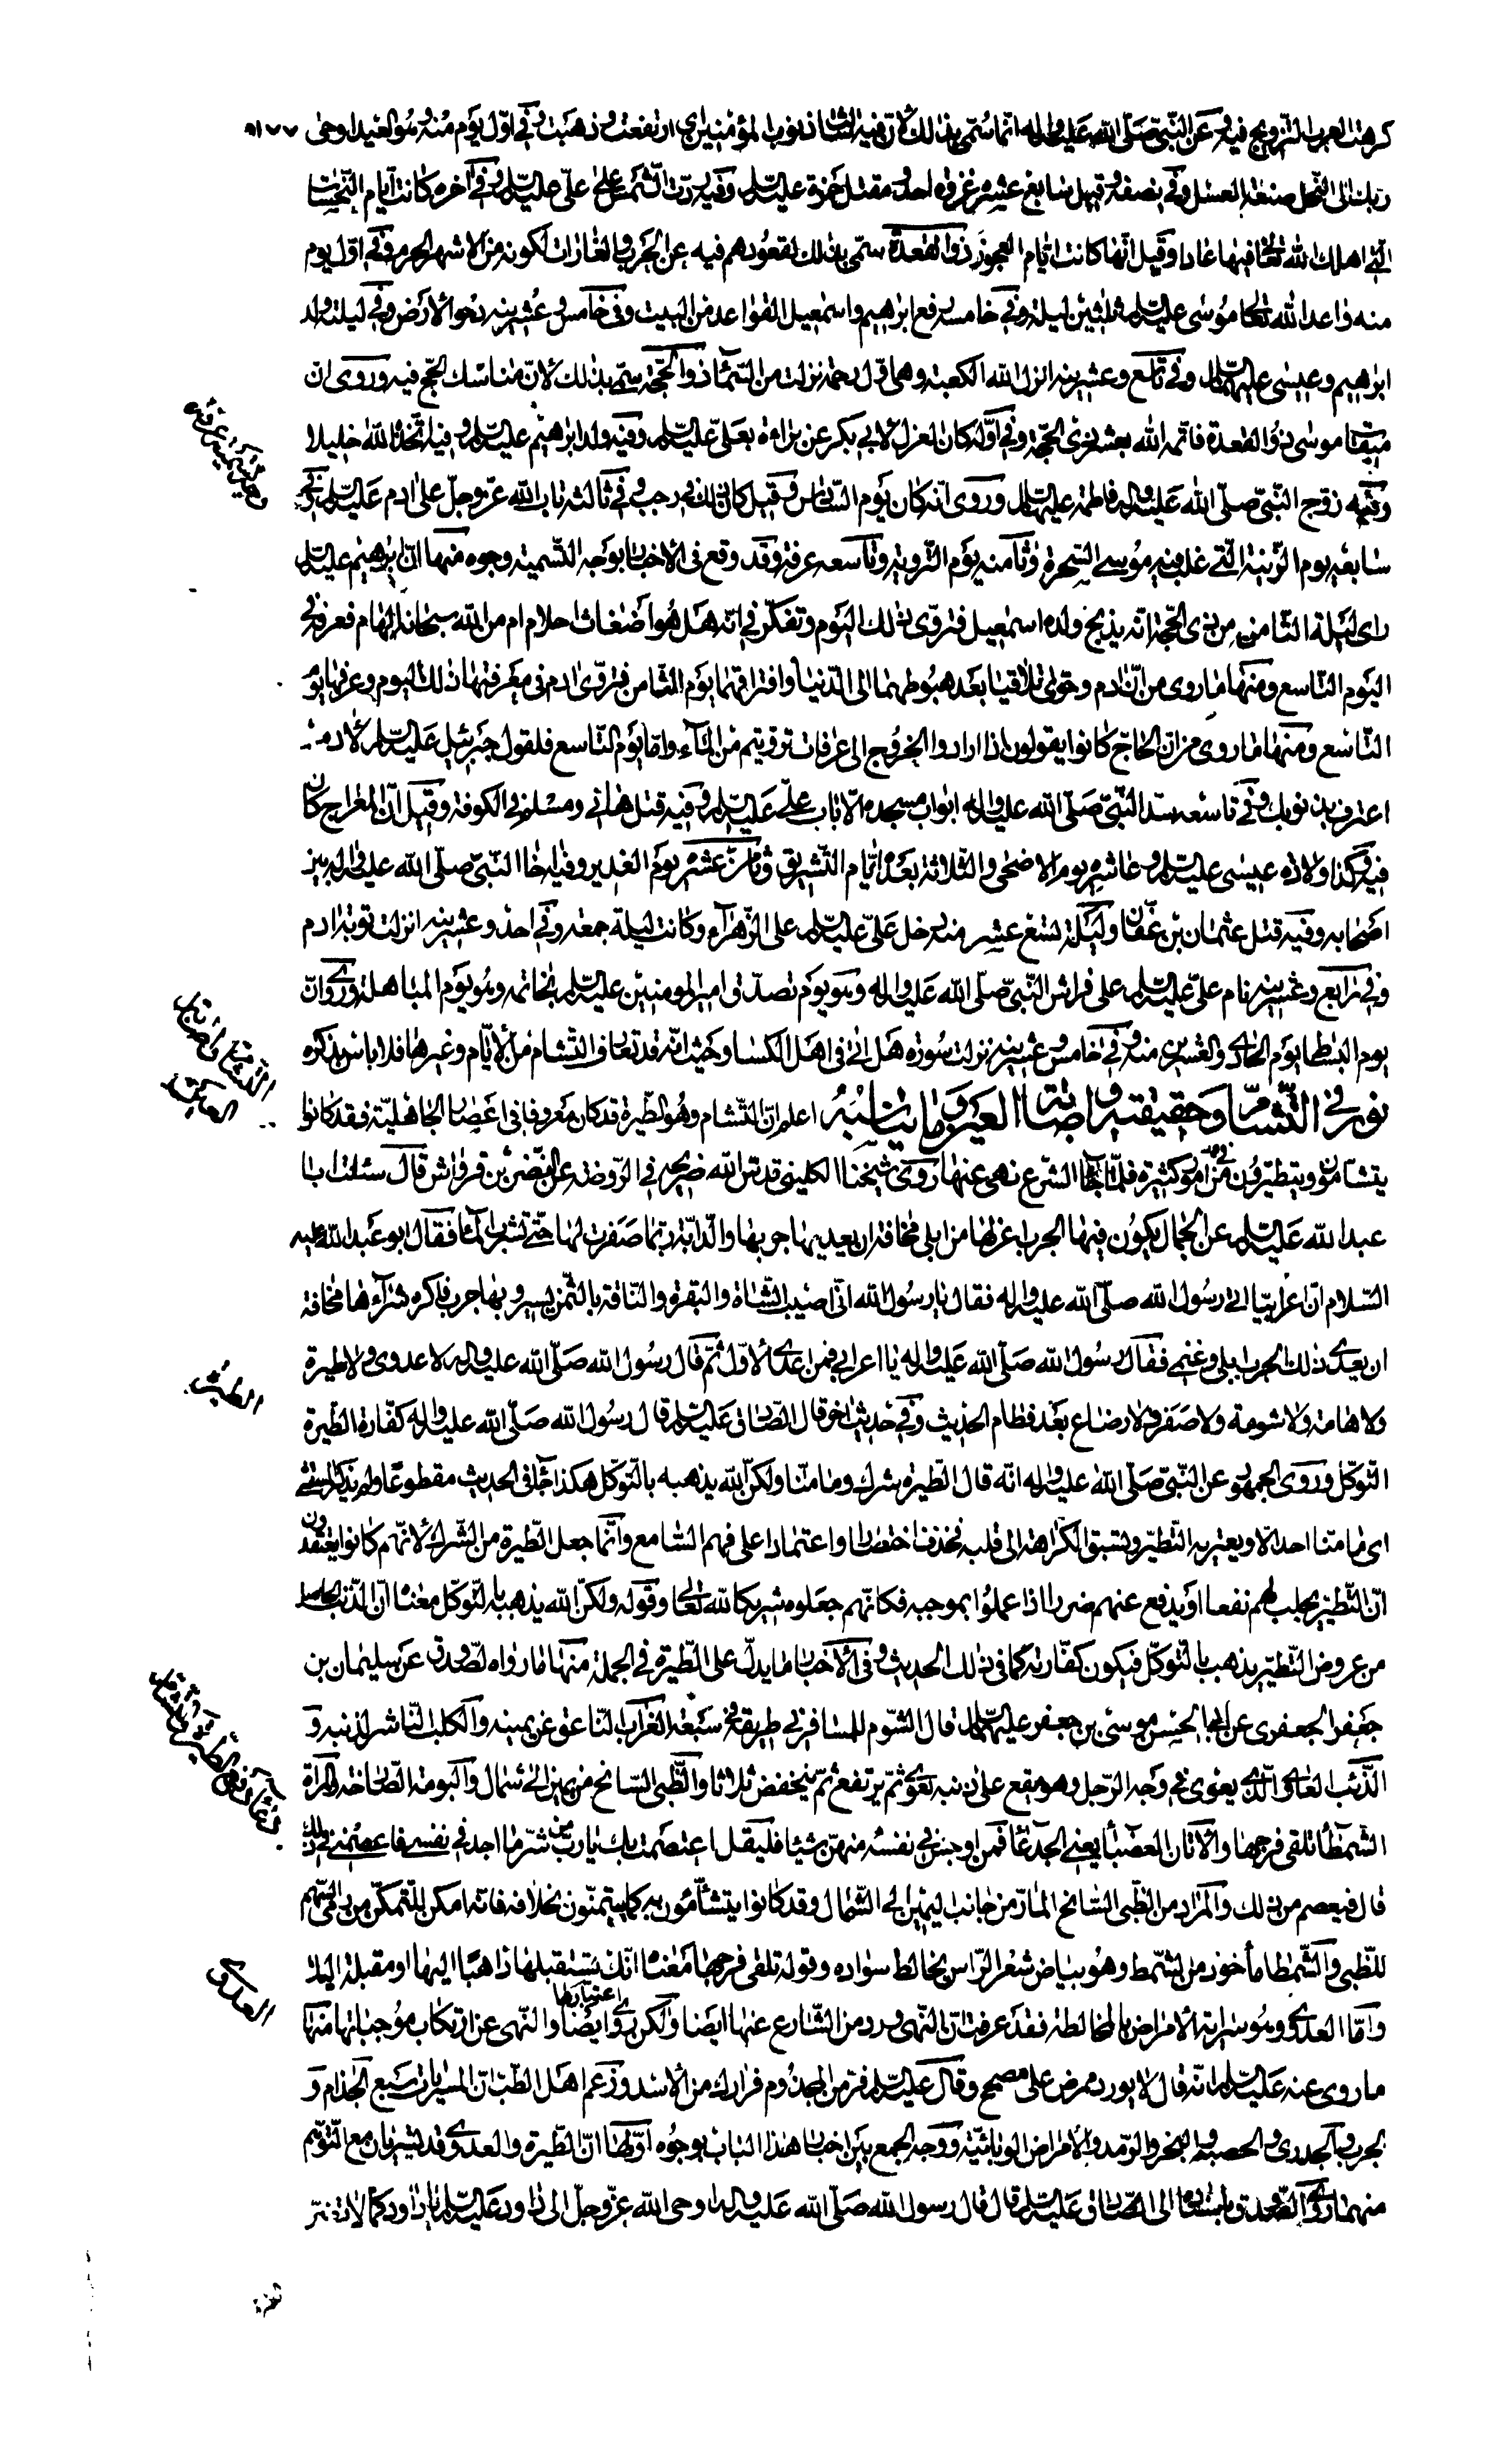 كرهت العرب التزويج فيه وعن النبي صلى الله عليه واله انما سمي بذلك لان فيه شالت ذنوب المؤمنين اي ارتفعت وذهبت وفي اول يوم منه وهو العيد اوحى ١٧٧
ربك الى النحل صنعة العسل وفي نصفه وقيل سابع عشره غزوة احد ومقتل حمزة عليه السلم وفيه ردت الشمس على علي عليه السلم وفي آخره كانت ايام النحسات
التي اهلك الله تعالى فيها عادا وقيل انها كانت ايام العجوز ذو القعدة سمي بذلك لقعودهم فيه عن الحرب والغارات لكونه من الاشهر الحرم وفي اول يوم
منه واعد الله تعالى موسى عليه السلم ثلاثين ليلة وفي خامسه رفع ابرهيم واسمعيل القواعد من البيت وفي خامس وعشرينه دحو الارض وفي ليلته ولد
ابرهيم وعيسى عليهما السلم وفي تاسع وعشرينه انزل الله الكعبة وهي اول رحمة نزلت من السماء ذو الحجة سمي بذلك لان مناسك الحج فيه وروى ان
ميقات موسى ذو القعدة فاتمه الله بعشر ذي الحجة وفي اوله كان العزل لابي بكر عن براءة بعلي عليه السلم وفيه ولد ابرهيم عليه السلم وفيه اتخذه الله خليلا
وفيه زوج النبي صلى الله عليه واله فاطمة عليها السلم وروى انه كان يوم السادس وقيل كان ذلك في رجب وفي ثالثه تاب الله عز وجل على ادم عليه السلم وفي
سابعه يوم الزينة التي غلب فيه موسى السحرة وثامنه يوم التروية وتاسعه عرفة وقد وقع في الاخبار بوجه التسمية وجوه منها ان ابرهيم عليه السلم
راى ليلة الثامن من ذي الحجة انه يذبح ولده اسمعيل فتروى ذلك اليوم وتفكر في انه هل هو اضغاث احلام ام من الله سبحانه الهام فعرفه في
اليوم التاسع ومنها ما روى من ان ادم وحوا تلاقيا بعد هبوطهما الى الدنيا وافتراقهما يوم الثامن فتروى ادم في معرفتها ذلك اليوم وعرفها يوم
التاسع ومنها ما روى من ان الحاج كانوا يقولون اذا ارادوا الخروج الى عرفات ترويتم من الماء واما يوم التاسع فلقول جبرئيل عليه السلم لادم
اعترف بذنوبك وفي تاسعه سد النبي صلى الله عليه واله ابواب مسجده الا باب علي عليه السلم وفيه قتل هاني ومسلم في الكوفة وقيل ان المعراج كان
فيه وكذا ولادة عيسى عليه السلم وعاشره يوم الاضحى والثلاثة بعده ايام التشريق وثامن عشره يوم الغدير وفيه اخا النبي صلى الله عليه واله بين
اصحابه وفيه قتل عثمان بن عفان وليلة تسع عشر منه دخل علي عليه السلم على الزهراء وكانت ليلة جمعة وفي احد وعشرينه انزلت توبة ادم
وفي رابع وعشرينه نام علي عليه السلم على فراش النبي صلى الله عليه واله وهو يوم تصدق امير المومنين عليه السلم بخاتمه وهو يوم المباهلة وروى ان
يوم البساط يوم الحادي والعشرين منه وفي خامس وعشرينه نزلت سورة هل اتى في اهل الكساء وحيث انه قد تعارف التشام من الايام وغيرها فلا باس بذكره
نور في التشأم وحقيقته واصابة العين وما يناسبه اعلم ان التشام وهو الطيرة قد كان معروفا في اعصار الجاهلية فقد كانوا
يتشامون ويتطيرون من امور كثيرة فلما جاء الشرع نهى عنها روى شيخنا الكليني قدس الله ضريحه في الروضة عن النضر بن قرواش قال سئلت ابا
عبد الله عليه السلم عن الجمال يكون فيها الجرب اعزلها من ابلي مخافة ان يعديها جربها والدابة ربما صفرت لها حتى تشرب الماء فقال ابو عبد الله عليه
السلام ان اعرابيا اتى رسول الله صلى الله عليه واله فقال يا رسول الله اني اصيب الشاة والبقرة والناقة بالثمن اليسير وبها جرب فاكره شراءها مخافة
ان يعدي ذلك الجرب ابلي وغنمي فقال رسول الله صلى الله عليه واله يا اعرابي فمن اعدى الاول ثم قال رسول الله صلى الله عليه واله لا عدوى ولا طيرة
ولا هامة ولا شومة ولا صفر ولا رضاع بعد فطام الحديث وفي حديث اخر قال الصادق عليه السلم قال رسول الله صلى الله عليه واله كفارة الطيرة
التوكل وروى الجمهور عن النبي صلى الله عليه واله انه قال الطيرة شرك وما منا ولكن الله يذهبه بالتوكل هكذا جاء في الحديث مقطوعا ولم يذكر المستثنى
اي ما منا احد الا ويعتريه التطير ويسبق الكراهة الى قلبه فحذف اختصارا واعتمادا على فهم السامع وانما جعل الطيرة من الشرك لانهم كانوا يعتقدون
ان التطير يجلب لهم نفعا او يدفع عنهم ضررا اذا عملوا بموجبه فكانهم جعلوه شريكا لله تعالى وقوله ولكن الله يذهبه بالتوكل معناه ان الذنب الحاصل
من عروض التطير يذهب بالتوكل فيكون كفارته كما في ذلك الحديث وفي الاخبار ما يدل على الطيرة في الجملة منها ما رواه الصدوق عن سليمان بن
جعفر الجعفري عن ابي الحسن موسى بن جعفر عليهما السلم قال الشوم للمسافر في طريقه في سبعة الغراب الناعق عن يمينه والكلب الناشر لذنبه و
الذئب العاوي الذي يعوي في وجه الرجل وهو مقع على ذنبه يعوي ثم يرتفع ثم ينخفض ثلاثا والظبي السانح من يمين الى شمال والبومة الصارخة والمراة
الشمطاء تلقي فرجها والاتان العضباء يعني الجدعاء فمن اوجس في نفسه منهن شيئا فليقل اعتصمت بك يا رب من شر ما اجد في نفسي فاعصمني من ذلك
قال فيعصم من ذلك والمراد من الظبي السانح المار من جانب اليمين الى الشمال وقد كانوا يتشأمون به كما يتيمنون بخلافه فانه امكن للتمكن من رمي السهم
للظبي والشمطا مأخوذ من الشمط وهو بياض شعر الراس يخالط سواده وقوله تلقي فرجها معناه انك تستقبلها ذاهبا اليها او مقبلة اليك
واما العدوى وهو سراية الامراض بالمخالطة فقد عرفت ان النهي ورد من الشارع عنها ايضا ولكن روى ايضا اعتبارها والنهي عن ارتكاب موجباتها منها
ما روى عنه عليه السلم انه قال لا يورد ممرض على مصح وقال عليه السلم فر من المجذوم فرارك من الاسد وزعم اهل الطب ان المسريات سبع الجذام و
الجرب والجدري والحصبة والبخر والرمد والامراض الوبائية ووجه الجمع بين اخبار هذا الباب بوجوه اولها ان الطيرة والعدوى قد تؤثران مع التوهم
منهما روى الصدوق باسناده الى الصادق عليه السلم قال قال رسول الله صلى الله عليه واله اوحى الله عز وجل الى داود عليه السلم يا داود كما لا تضر
الطيرة
العدوى